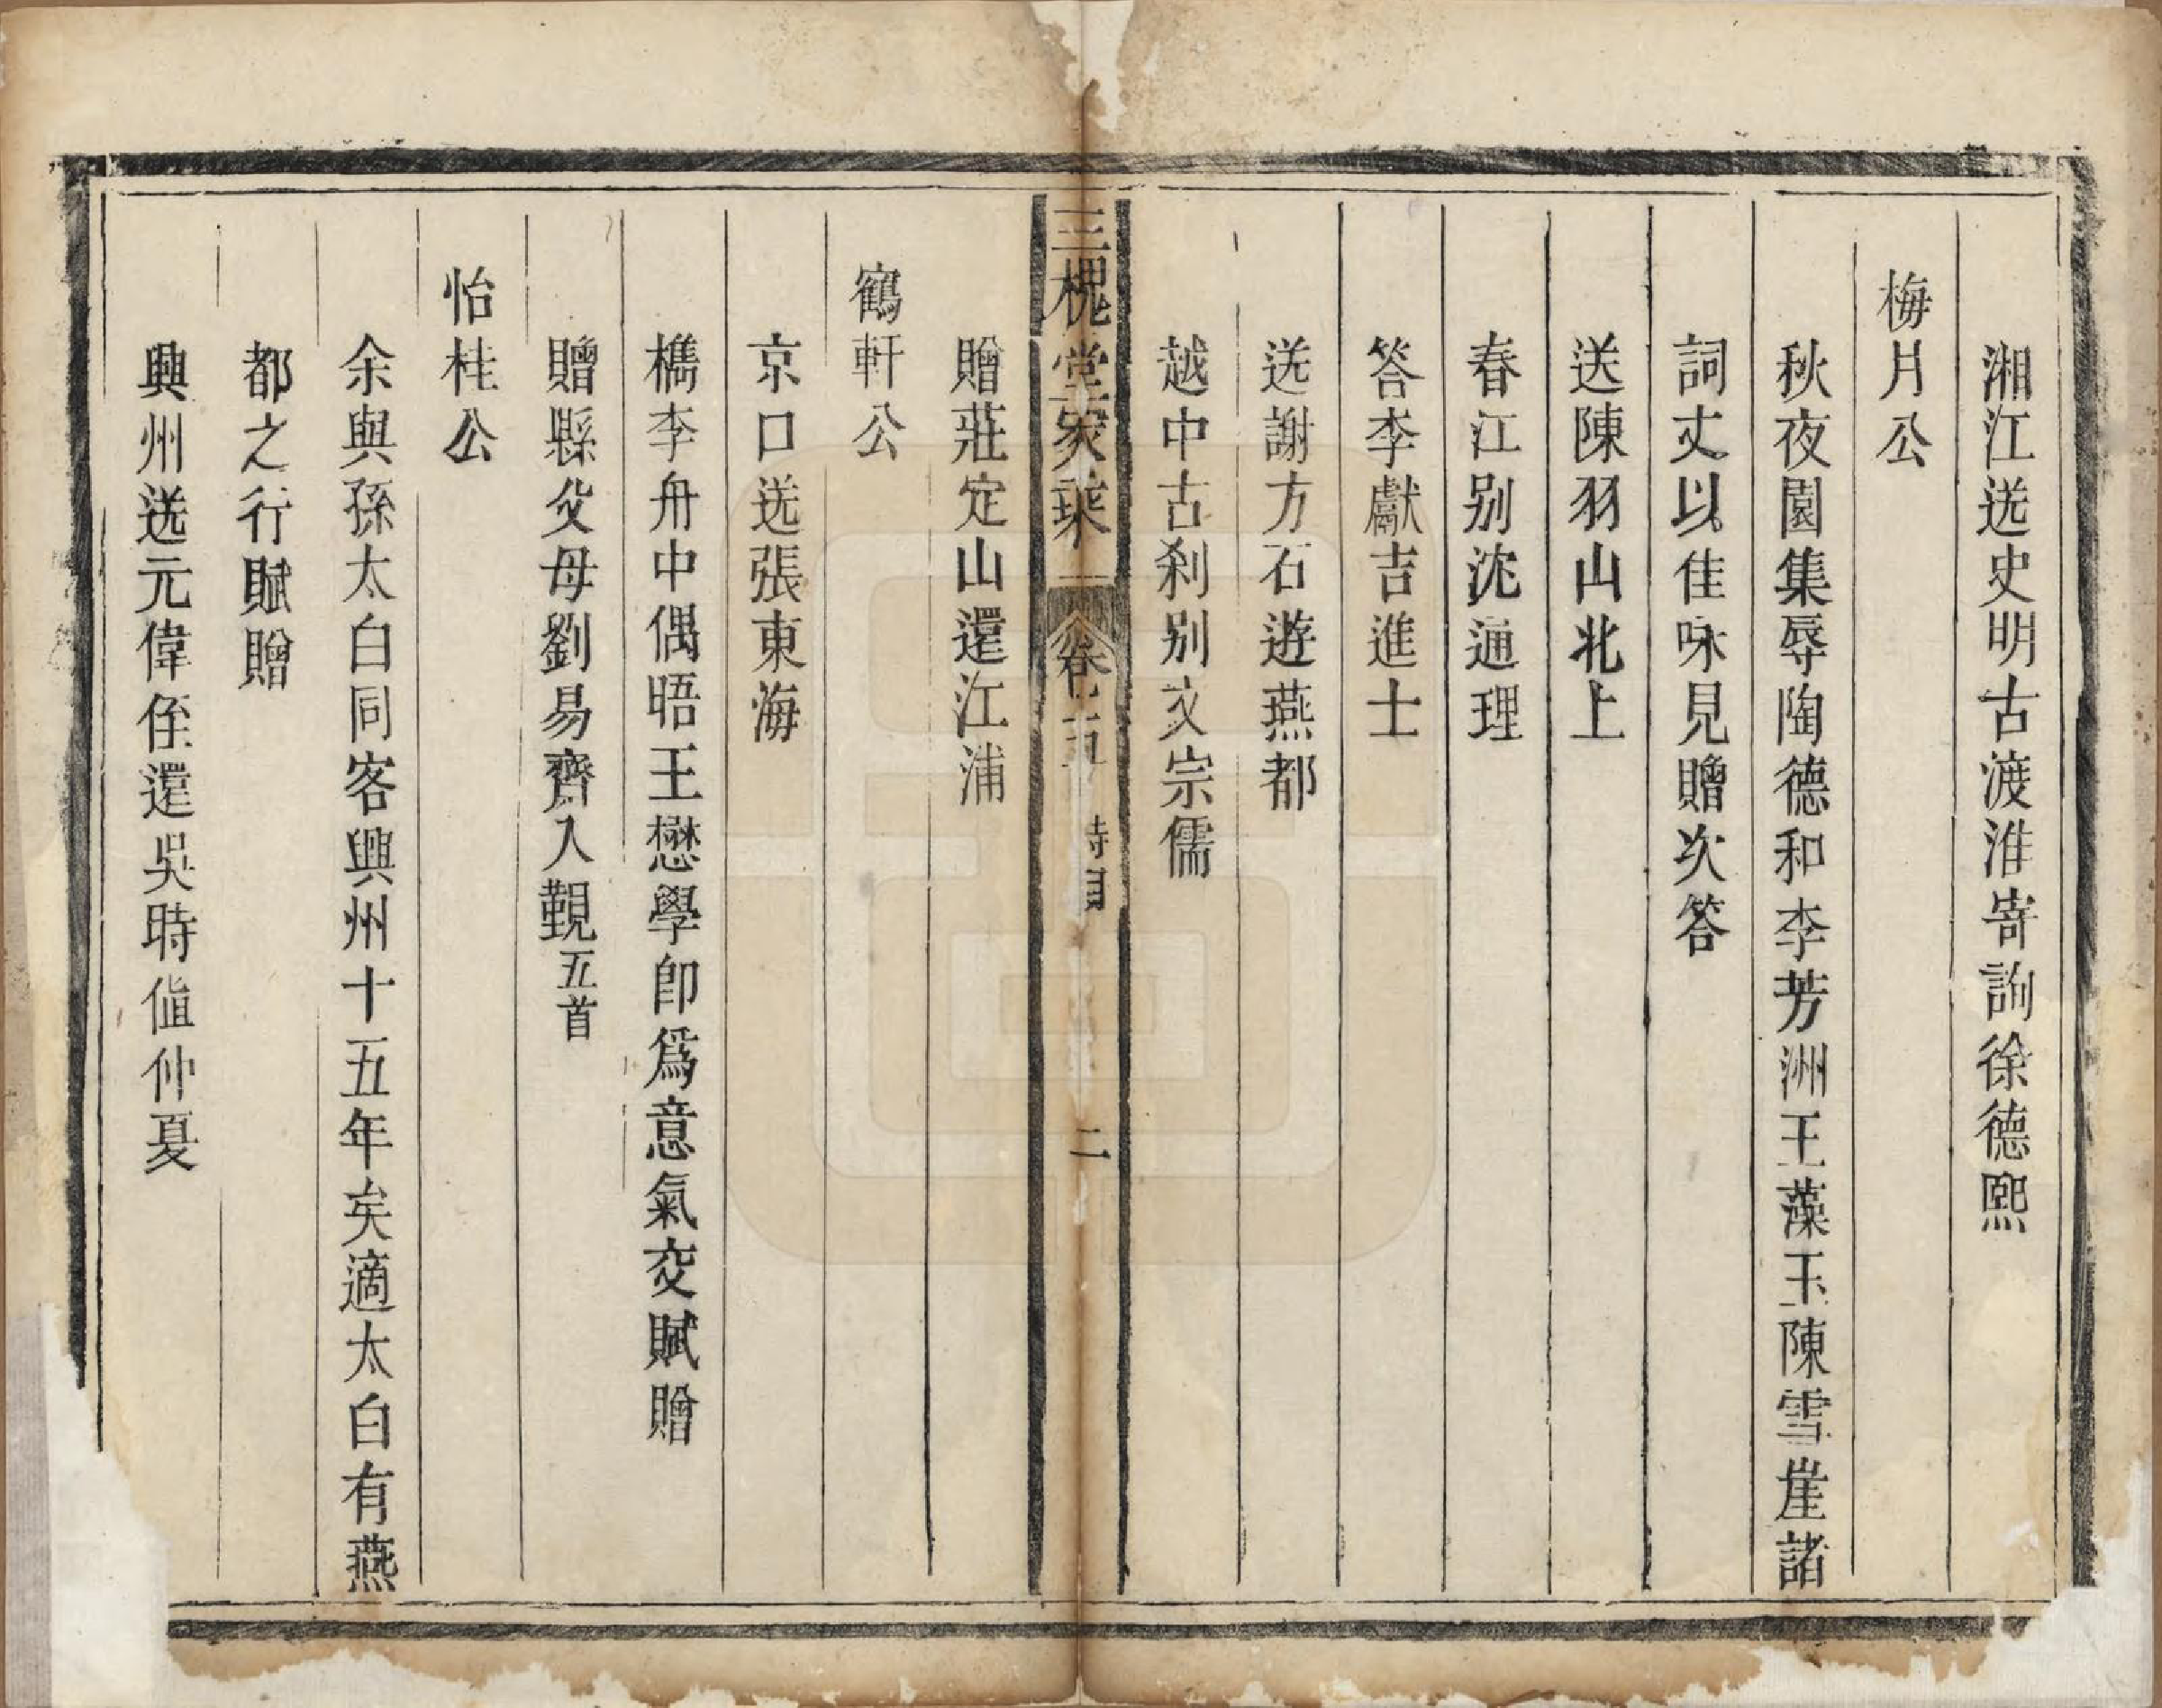 湘江送史明古渡淮寄詢徐德熙
梅月公
秋夜園集辱陶德和李芳洲王藻玉陳雪崖諸
詞丈以佳咏見贈次答
送陳羽山北上
春江別沈通理
答李獻吉進士
送謝方石遊燕都
越中古刹別文宗儒
三槐堂家乘 卷五 詩目 二
贈莊定山還江浦
鶴軒公
京口送張東海
檇李舟中偶晤王懋學卽爲意氣交賦贈
贈縣父母劉易齋入覲五首
怡桂公
余與孫太白同客興州十五年矣適太白有燕
都之行賦贈
興州送元偉侄還吳時值仲夏